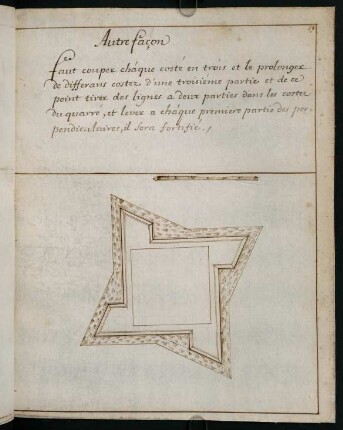 Autre façon
faut couper cháque costé en trois et le prolonger
de differans costez d'une troisieme partie et de ce
point tirer des lignes a deux parties dans les costez
du quarré, et lever a cháque premiere partie des per-
pendiculaires, il sera fortifié.